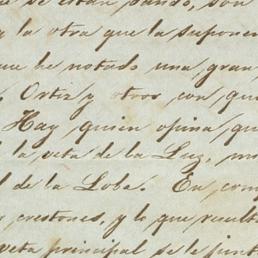 se estan dando, son
y la otra que la suponen
que he notado una gran
Ortiz y otros con que
Hay quien opina qu
la veta de la Luz, m
l de la Loba. En com
crestones, y lo que result
veta principal se le junt